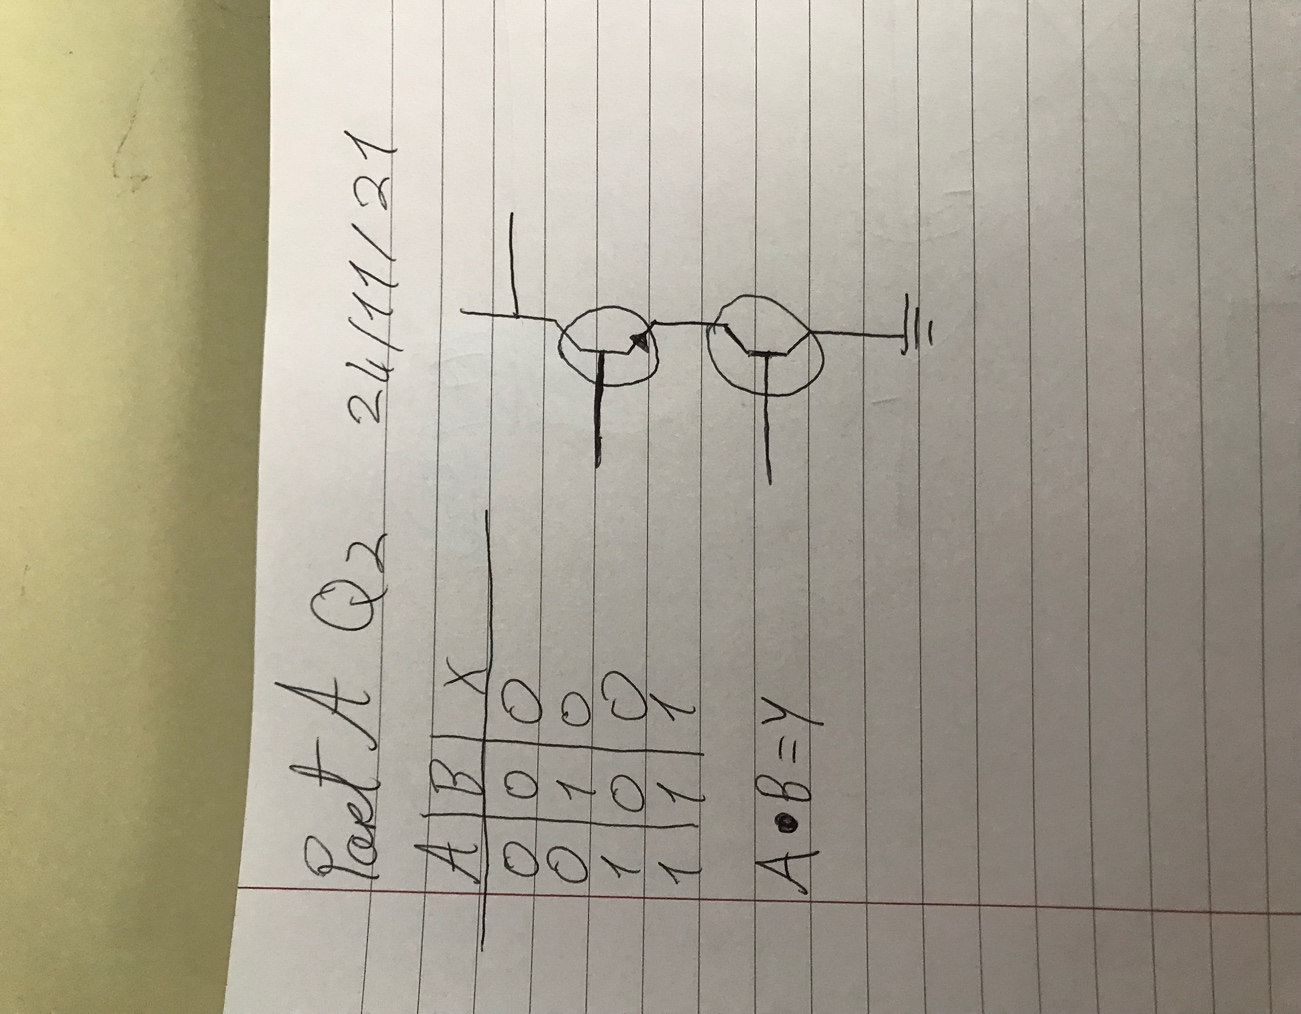 Part A Q2 24/11/21
A B X
0 0 0
0 1 0
1 0 0
1 1 1
A•B=Y